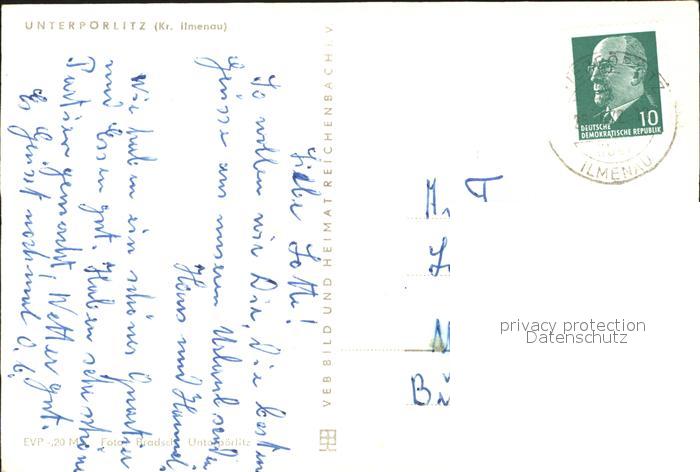 UNTERPÖRLITZ (Kr. Ilmenau)
Liebe Lotte!
So wollen wir Dir, Die besten
Grüsse aus unseren Urlaub senden
Hans und Hanne
Wir haben ein schönes Quartier
und Essen gut. Haben sehr schöne
Partien gemacht, Wetter gut.
Es Grüsst nochmal O. b.
VEB BILD UND HEIMAT REICHENBACH I. V.
EVP -,20 M Foto: Bradsch, Unterpörlitz
10
DEUTSCHE
DEMOKRATISCHE REPUBLIK
ILMENAU
privacy protection
Datenschutz